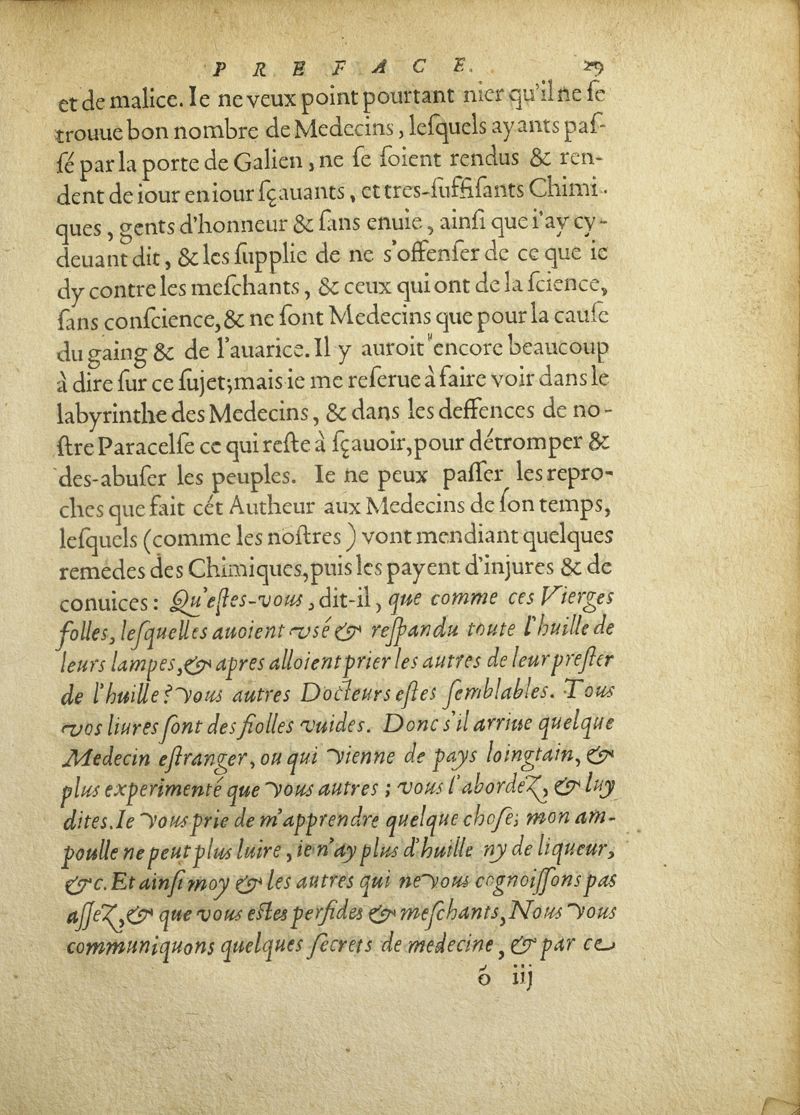 PREFACE. 29
et de malice. Ie ne veux point pourtant nier qu'il ne ſe
trouue bon nombre de Medecins, leſquels ayants paſ-
ſé par la porte de Galien, ne ſe ſoient rendus & ren-
dent de iour en iour ſçauants, et tres-ſuffiſants Chimi-
ques, gents d'honneur & ſans enuie, ainſi que i'ay cy-
deuant dit, & les ſupplie de ne s'offenſer de ce que ie
dy contre les meſchants, & ceux qui ont de la ſcience,
ſans conſcience, & ne ſont Medecins que pour la cauſe
du gaing & de l'auarice. Il y auroit encore beaucoup
à dire ſur ce ſujet; mais ie me reſerue à faire voir dans le
labyrinthe des Medecins, & dans les deffences de no-
ſtre Paracelſe ce qui reſte à ſçauoir, pour détromper &
des-abuſer les peuples. Ie ne peux paſſer les repro-
ches que fait cét Autheur aux Medecins de ſon temps,
leſquels (comme les noſtres) vont mendiant quelques
remedes des Chimiques, puis les payent d'injures & de
conuices: Qu'eſtes-vous, dit-il, que comme ces Vierges
folles, leſquelles auoient vsé & reſpandu toute l'huille de
leurs lampes, & apres alloient prier les autres de leur preſter
de l'huille? Vous autres Docteurs eſtes ſemblables. Tous
vos liures ſont des fiolles vuides. Donc s'il arriue quelque
Medecin eſtranger, ou qui vienne de pays loingtain, &
plus experimenté que vous autres; vous l'abordez, & luy
dites. Ie vous prie de m'apprendre quelque choſe; mon am-
poulle ne peut plus luire, ie n'ay plus d'huille ny de liqueur,
&c. Et ainſi moy & les autres qui ne vous cognoiſſons pas
aſſez, & que vous eſtes perfides & meſchants, Nous vous
communiquons quelques ſecrets de medecine, & par ce
õ iij